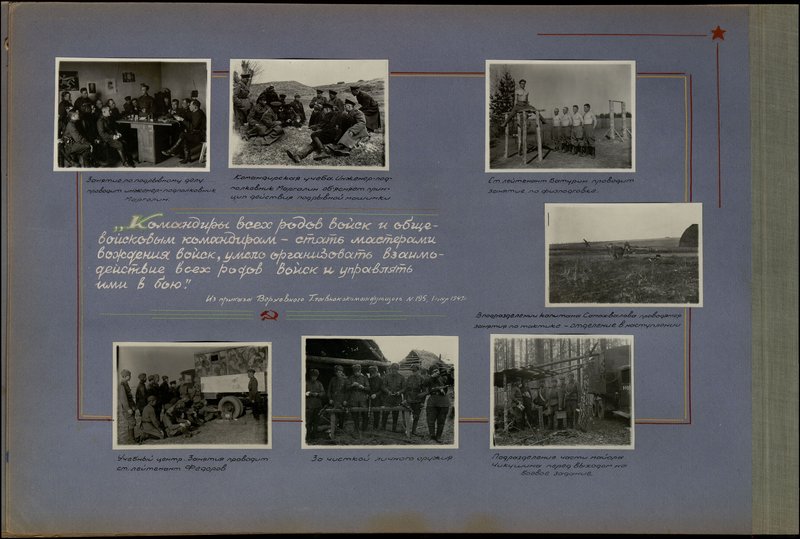 Занятие по подрывному делу
проводит инженер-подполковник
Марголин.
Командирская учеба. Инженер-под-
полковник Марголин объясняет прин-
цип действия подрывной машинки
Ст. лейтенант Батурин проводит
занятие по физподготовке.
„Командиры всех родов войск и обще-
войсковым командирам – стать мастерами
вождения войск, умело организовать взаимо-
действие всех родов войск и управлять
ими в бою."
Из приказа Верховного Главнокомандующего N 195, 1 мая 1943г.
В подразделении капитана проводятся
занятия по тактике – отделение в наступлении
Учебный центр. Занятия проводит
ст. лейтенант Федоров
За чисткой личного оружия
Подразделение части майора
Чикушина перед выходом на
боевое задание.